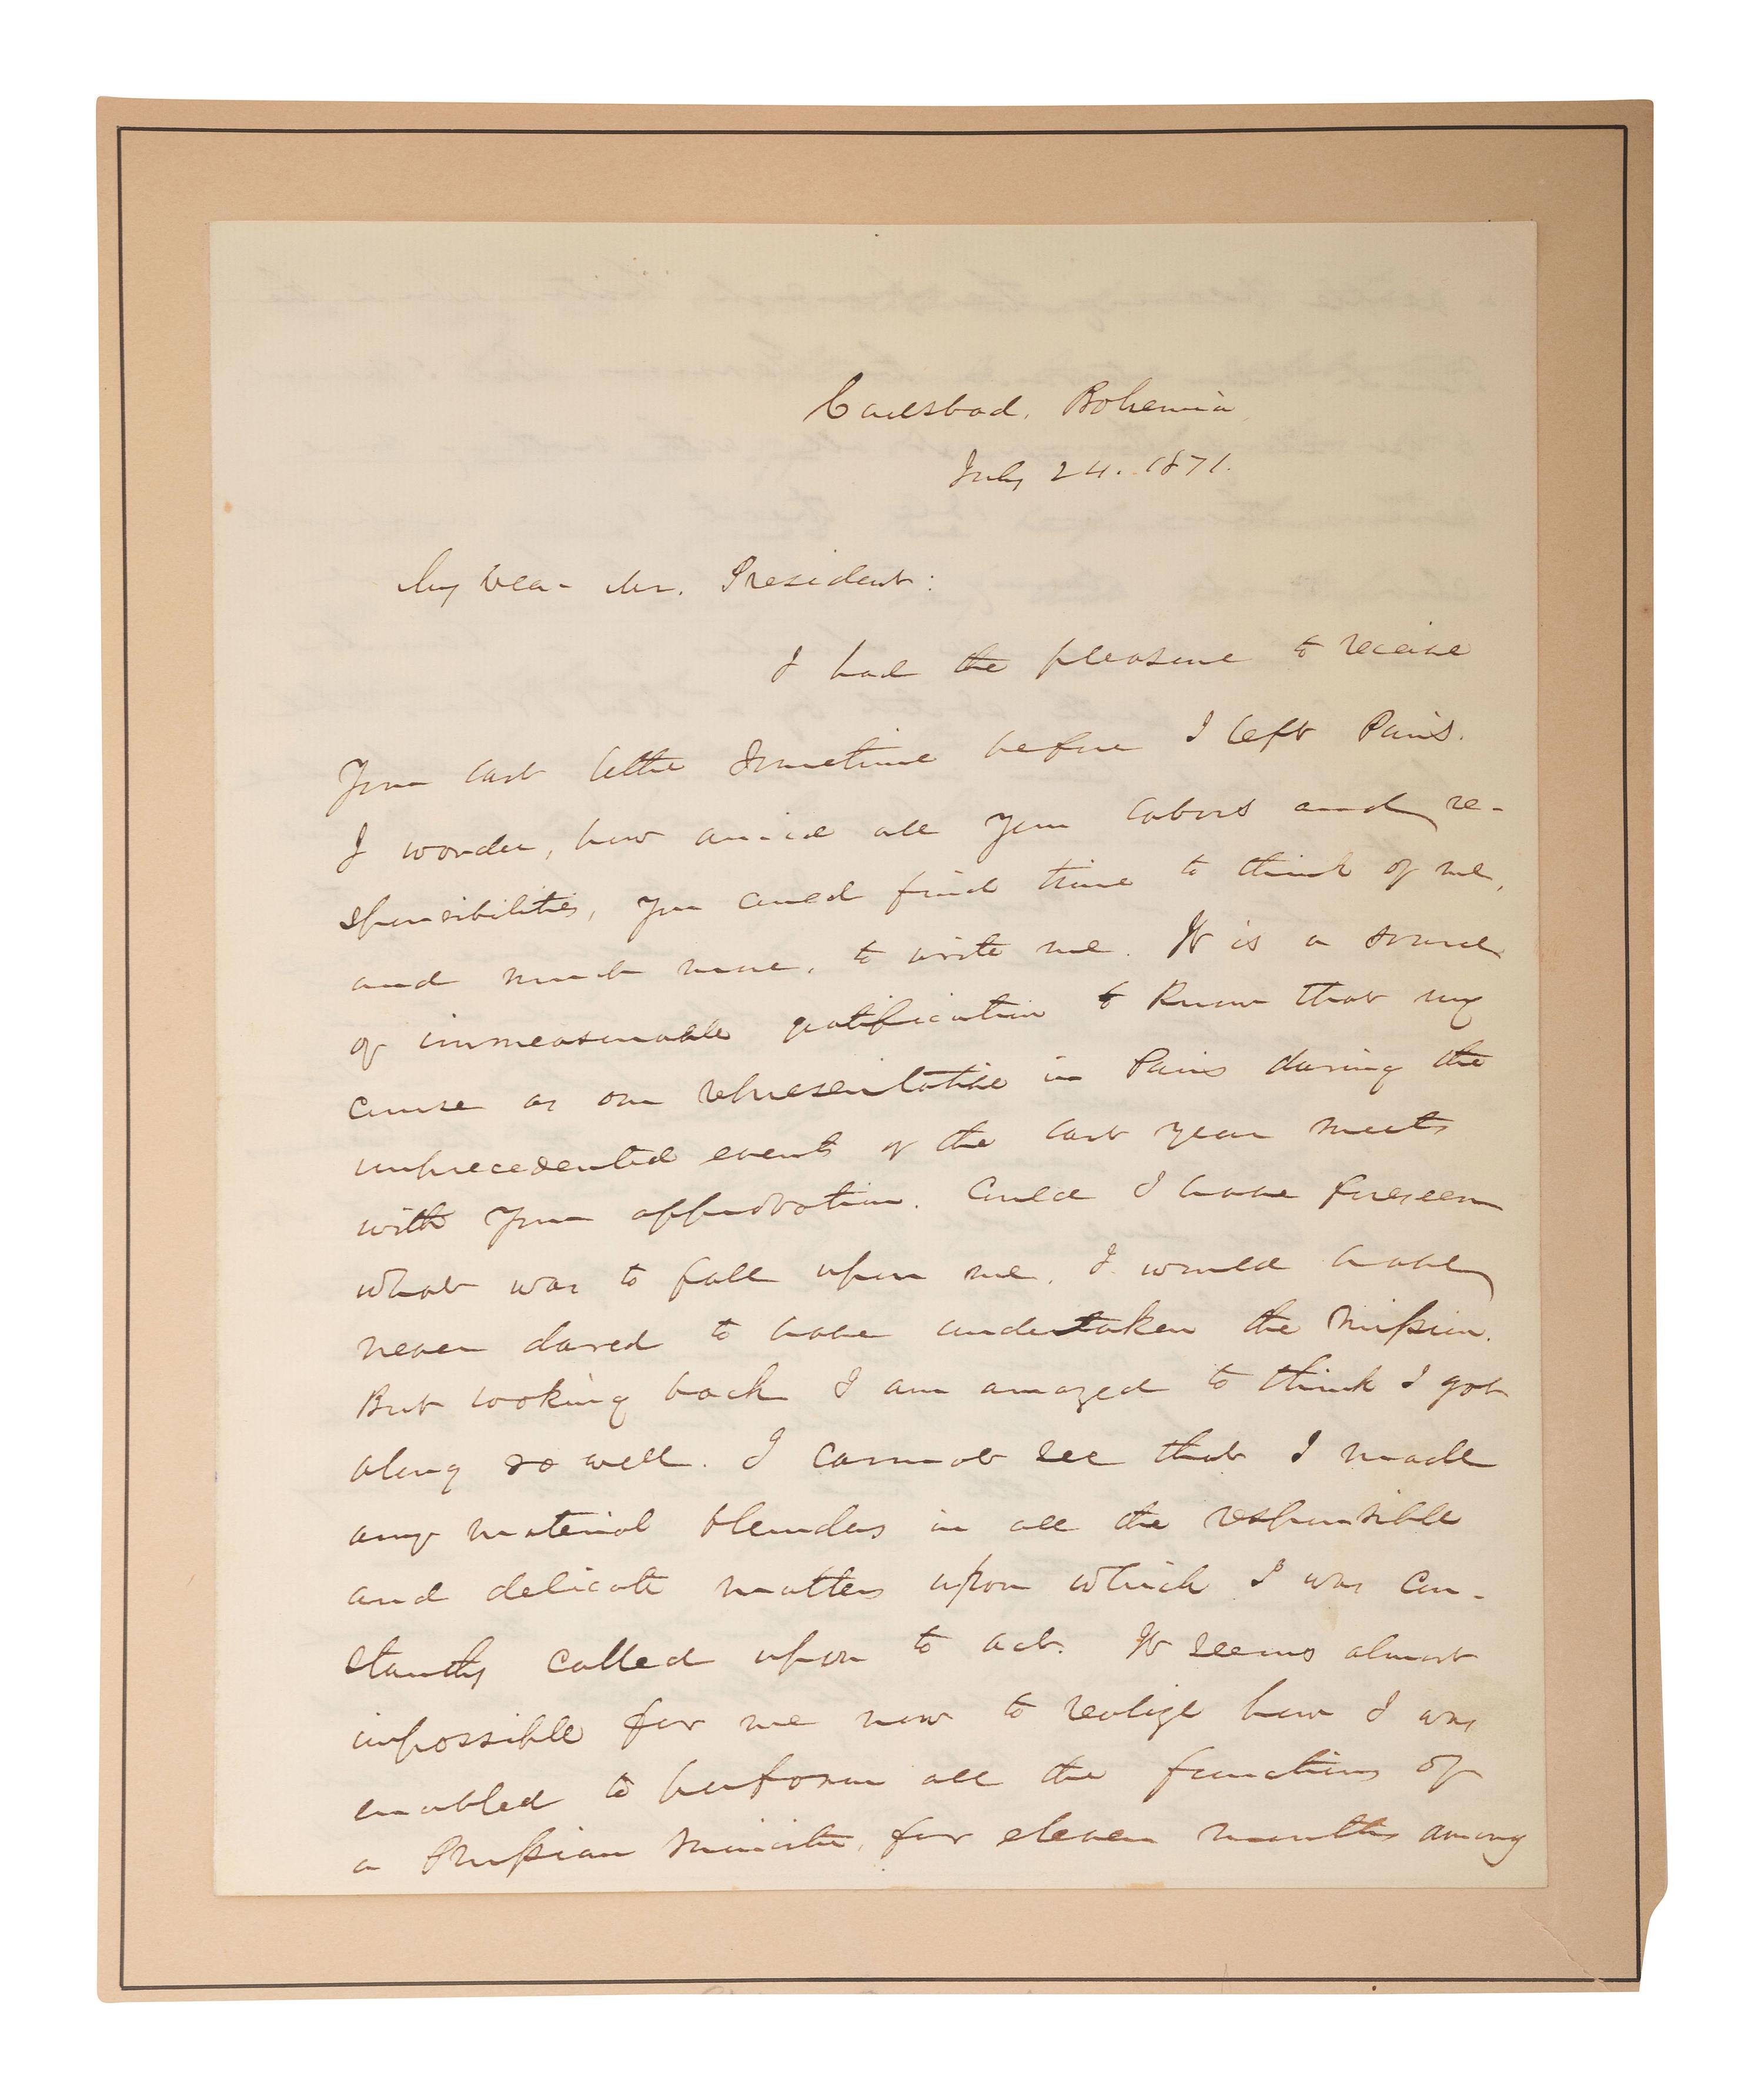 Carlsbad, Bohemia
July 24. 1871.
My dear Mr. President:
I had the pleasure to receive
your last letter sometime before I left Paris.
I wonder, how amid all your labors and re-
sponsibilities, you could find time to think of me,
and much more, to write me. It is a source
of immeasurable gratification to know that my
course as our representative in Paris during the
unprecedented events of the last year meets
with your approbation. Could I have foreseen
what was to fall upon me, I would have
never dared to have undertaken the mission.
But looking back I am amazed to think I got
along so well. I cannot see that I made
any material blunders in all the responsible
and delicate matters upon which I was con-
stantly called upon to act. It seems almost
impossible for me now to realize how I was
enabled to perform all the functions of
a Prussian minister, for eleven months among